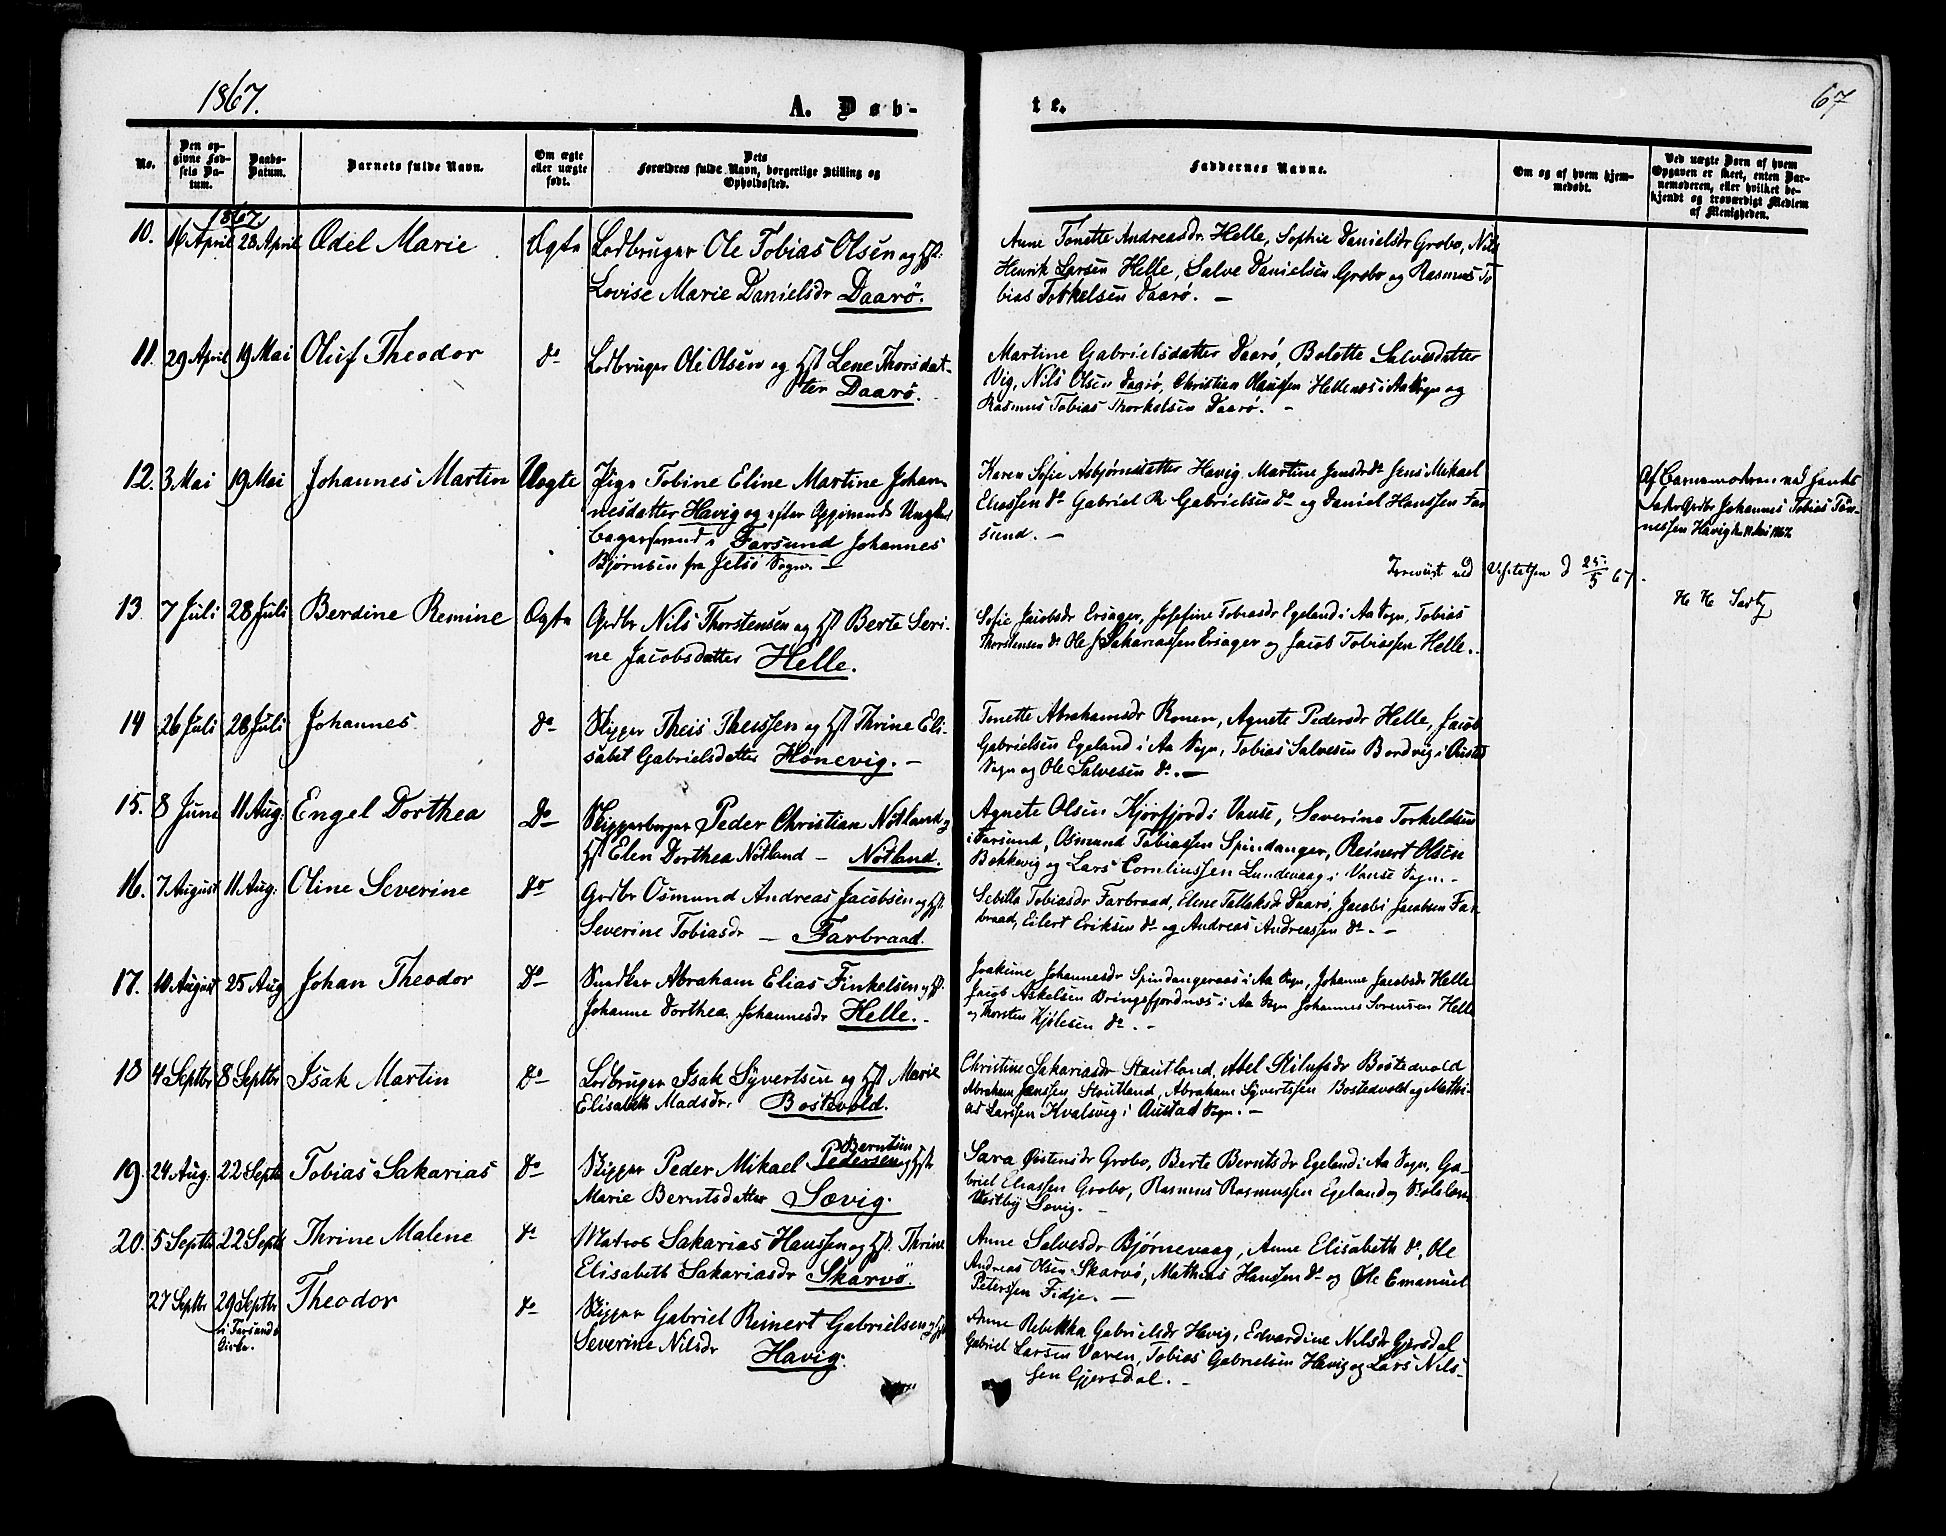 1867.
A. Døb-
te.
67
No.
Den op-
givne Fød-
sels Da-
tum.
Daabs-
Datum.
Barnets fulde Navn.
Om ægte
eller uægte
født.
Dets
Forældres fulde Navn, borgerlige Stilling og
Opholdssted.
Faddernes Navne.
Om og af hvem hjem-
medøbt.
Ved uægte Børn af hvem
Opgaven er skeet, enten Bar-
nemoderen, eller hvilket be-
kjendt og troværdigt Medlem
af Menigheden.
1867
10. 16 April 28 April Odel Marie Ægte Lodbruger Ole Tobias Olsen og Hst:
Lovise Marie Danielsdr Daarø.
Anne Tonette Andreasdr. Helle, Sophie Danielsdr Grobo, Nils
Henrik Larsen Helle, Salve Danielsen Grobo og Rasmus To
bias Torkelsen Daarø. –
11. 29 April 19 Mai Oluf Theodor do Lodbruger Ole Olsen og Hst Lene Thorsdat-
ter Daarø.
Martine Gabrielsdatter Daarø, Bolette Salvesdatter
Vig, Nils Olsen Daarø, Christian Olaussen Hellenes i Aa Sogn og
Rasmus Tobias Thorkelsen Daarø. –
12. 3 Mai 19 Mai Johannes Martin Uægte Pige Tobine Eline Martine Johan-
nesdatter Havig og efter Opgivende Ungkarl
Bagersvend i Farsund Johannes
Bjørnsen fra Jelsø Sogn. –
Karen Sofie Asbjørnsdatter Havig, Martine Jensdr do Jens Mikael
Eliassen do Gabriel R Gabrielsen do og Daniel Hanssen Far
sund. –
Af Barnemoderen ved hendes
Fader Grdbr Johannes Tobias Tøn-
nessen Havig
Forevist ved Visitatsen d 25/5 67.
H H
13. 7 Juli 28 Juli Berdine Remine Ægte Grdbr Nils Thorstensen og Hst Berte Seri-
ne Jacobsdatter Helle.
Sofie Jacobsdr Ersager, Josefine Tobiasdr Egeland i Aa Sogn, Tobias
Thorstensen do Ole J Sakariassen Ersager og Jacob Tobiassen Helle.
14 26 Juli 28 Juli Johannes do Skipper Theis Theissen og Hst Thrine Eli-
sabet Gabrielsdatter Hönevig. –
Tonette Abrahamsdr Ronen, Agnete Pedersdr Helle, Jacob
Gabrielsen Egeland i Aa Sogn, Tobias Salvesen Bordvig i Austad
Sogn og Ole Salvesen do. –
15. 8 Juni 11 Aug: Engel Dorthea Do Skipperborger Peder Christian Nötland og
Hst Elen Dorthea Nötland – Nötland.
Agnete Olsen Kjørfjord i Vanse, Saverine Torkeldsen
i Farsund, Osmund Tobiassen Spindanger, Reinert Olsen
Bekkevig og Lars Corneliussen Lundevaag i Vanse Sogn. –
16. 7 August 11 Aug: Oline Severine do Grdbr Osmund Andreas Jacobsen og Hst.
Severine Tobiasdr – Farbraad.
Sebille Tobiasdr Farbraad, Elene Tallaksdr Daarø, Jacob Jacobsen Far-
braad, Eilert Eriksen do og Andreas Andreassen do. –
17. 10 August 25 Aug Johan Theodor Do Snedker Abraham Elias Finkelsen og Hst.
Johanne Dorthea Johannesdr Helle. –
Joakime Johannesdr Spindangernæs i Aa Sogn, Johanne Jacobsdr Helle
Jacob Askelsen Bringsfjordnæs i Aa Sogn Johannes Sørensen Helle
og Thorsten Kjølesen do. –
18 4 Septbr 8 Septbr Isak Martin Do Lodbruger Isak Syvertsen og Hst Marie
Elisabeth Madsdr. Bostevold.
Christine Sakariasdr Stautland, Abel Steilufsdr Bostedvold
Abraham Janssen Stoutland, Abraham Syvertsen Bostedvold og Mathi-
as Larssen Kvalsvig i Austad Sogn. –
19. 24 Aug: 22 Septb Tobias Sakarias do Skipper Peder Mikael Pedersen Berntsen og Hst.
Marie Berntsdatter Sævig.
Sara Øistensdr Grobo, Berte Berntsdr Egeland i Aa Sogn, Ga-
briel Eliassen Grobo, Rasmus Rasmussen Egeland og
Vestby Sævig. –
20. 5 Septb 22 Septb Thrine Malene do Matros Sakarias Hanssen og Hst. Thrine
Elisabeth Sakariasdr Skarvö.
Anne Salvesdr Bjørnevaag, Anne Elisabeth do, Ole
Andreas Olsen Skarvø, Mathias Hansen do og Ole Emanuel
Peterssen Fidje. –
27 Septbr 29 Septbr
i Farsunds
Kirke.
Theodor do Skipper Gabriel Reinert Gabrielsen og Hst
Severine Nilsdr Havig.
Anne Rebekka Gabrielsdr Havig, Edvardine Nilsdr Gjersdal
Gabriel Larsen Varen, Tobias Gabrielsen Havig og Lars Nils-
sen Gjersdal. –